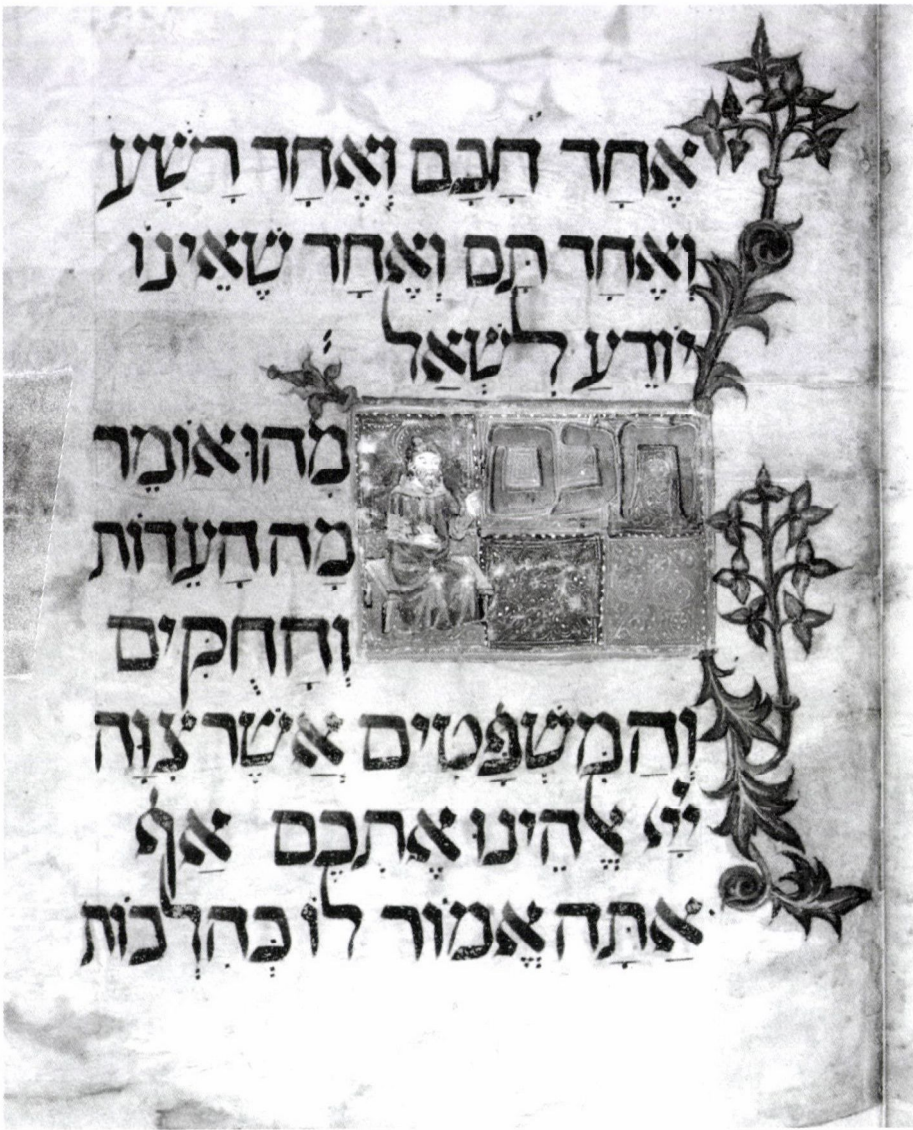 אֶחָד חָכָם וְאֶחָד רָשָׁע
וְאֶחָד תָּם וְאֶחָד שֶׁאֵינוֹ
יוֹדֵעַ לִשְׁאַל
חכם מַהוּ אוֹמֵר
מָה הָעֵדוֹת
וְהַחֻקִּים
וְהַמִּשְׁפָּטִים אֲשֶׁר צִוָּה
יְיָ אֱלֹהֵינוּ אֶתְכֶם אַף
אַתָּה אֱמוֹר לוֹ כְּהִלְכוֹת